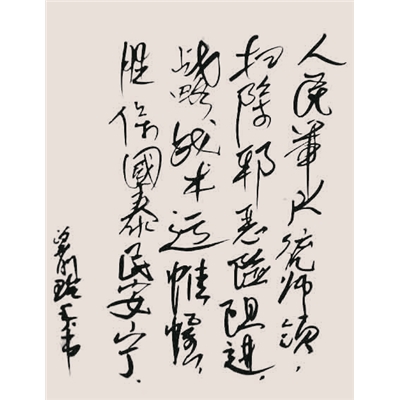 人民軍队统帅领，
扫除邪恶险阻进.
战略战术运帷幄，
胜保國泰民安宁.